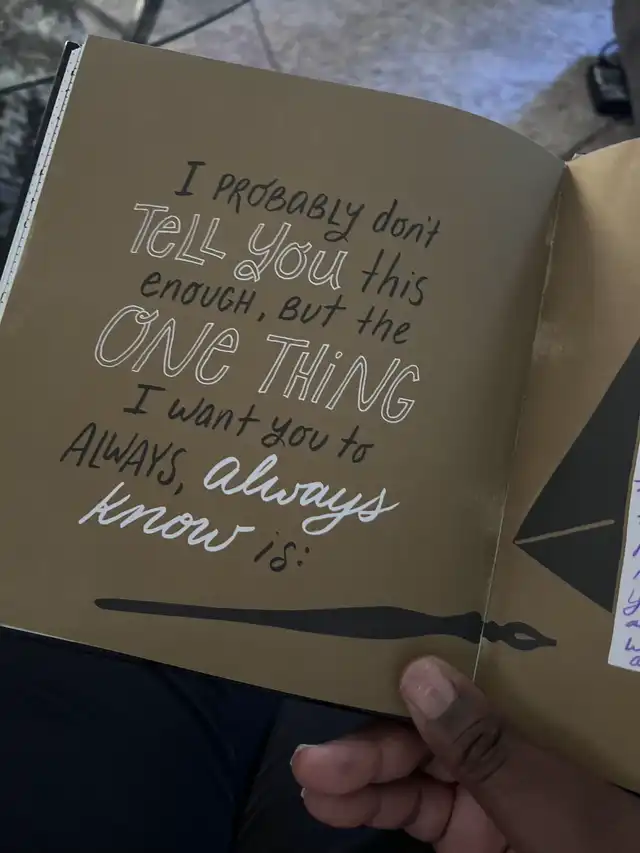 I PROBABLY don't
TELL YOU this
enough, BUT the
ONE THING
I want you to
ALWAYS, always
know is: